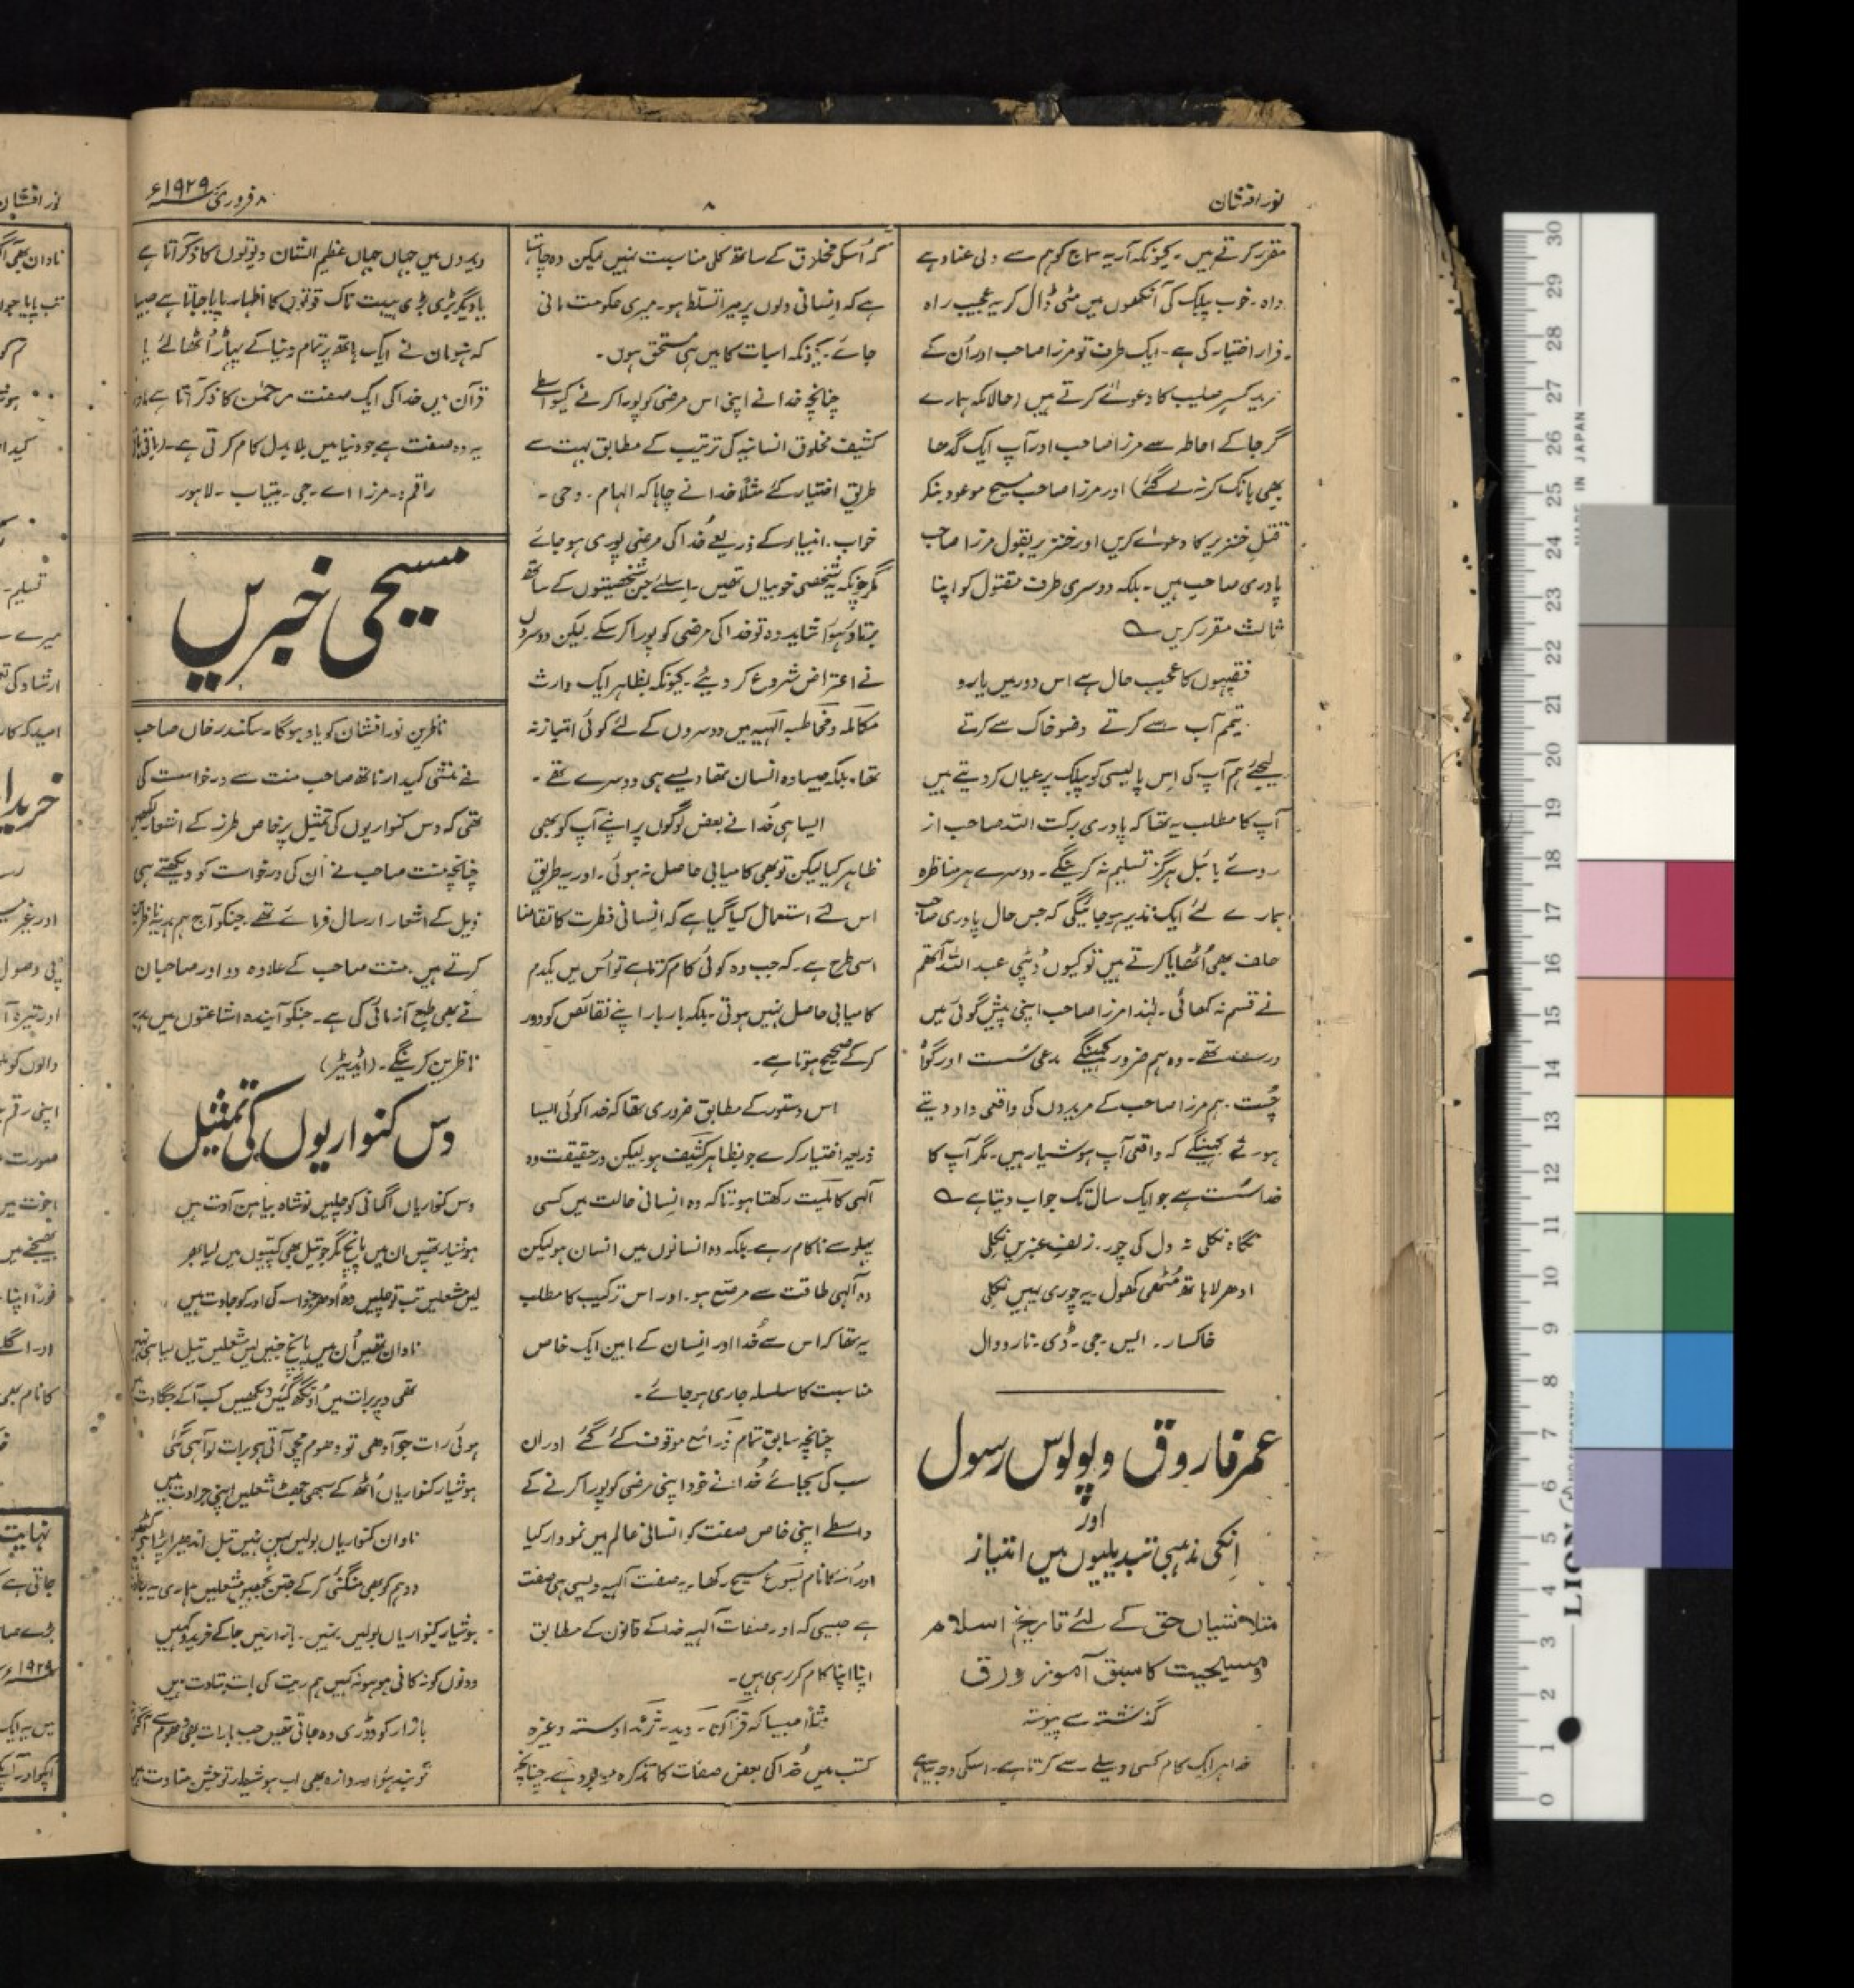 نور افشان
۸
۸ فروری ۱۹۲۹ء
مقرر کرتے ہیں۔ کیونکہ آریہ سماج کو ہم سے دلی عناد ہے
واہ۔ خوب پبلک کی آنکھوں میں مٹی ڈال کر یہ عجیب راہ
فرار اختیار کی ہے۔ ایک طرف تو مرزا صاحب اور اُن کے
مرید کسر صلیب کا دعوےٰ کرتے ہیں (حالانکہ ہمارے
گرجا کے احاطہ سے مرزا صاحب اور آپ ایک گدھا
بھی ہانک کر نہ لے گئے) اور مرزا صاحب مسیح موعود بنکر
قتل خنزیر کا دعوےٰ کریں اور خنزیر بقول مرزا صاحب
پادری صاحب ہیں۔ بلکہ دوسری طرف مقتول کو اپنا
ثالث مقرر کریں ؎
فقیہوں کا عجیب حال ہے اس دور میں یارو
تیمم آب سے کرتے وضو خاک سے کرتے
لیجئے ہم آپ کی اِس پالیسی کو پبلک پر عیاں کر دیتے ہیں
آپ کا مطلب یہ تھا کہ پادری برکت اللہ صاحب از
روئے بائبل ہرگز تسلیم نہ کرینگے۔ دوسرے ہر مناظرہ
ہمارے لئے ایک نذیر ہو جائیگی کہ جس حال پادری صاحب
حلف بھی اُٹھایا کرتے ہیں تو کیوں ڈپٹی عبد اللہ آتھم
نے قسم نہ کھائی۔ لہٰذا مرزا صاحب اپنی پیش گوئی میں
درست تھے۔ وہ ہم ضرور کہینگے مدعی سُست اور گواہ
چُست۔ ہم مرزا صاحب کے مریدوں کی واقعی داد دیتے
ہوئے کہینگے کہ واقعی آپ ہوشیار ہیں۔ مگر آپ کا
خدا سُست ہے جو ایک سال تک جواب دیتا ہے ؎
نگاہ نکلی نہ دل کی چور۔ زلفِ عنبریں نکلی
ادھر لا ہاتھ مُٹھی کھول یہ چوری یہیں نکلی
خاکسار۔ ایس۔ جی۔ ڈی۔ نارووال
عمر فاروق و پولوس رسول
اور
اِنکی مذہبی تبدیلیوں میں امتیاز
متلاشیاں حق کے لئے تاریخ اسلام
و مسیحیت کا سبق آموز ورق
گذشتہ سے پیوستہ
خدا ہر ایک کام کسی وسیلے سے کرتا ہے۔ اسکی وجہ یہ ہے
کہ اُسکی مخلوق کے ساتھ کلی مناسبت نہیں لیکن وہ چاہتا
ہے کہ اِنسانی دلوں پر میرا تسلّط ہو۔ میری حکومت مانی
جائے۔ کیونکہ اسبات کا میں ہی مستحق ہوں۔
چنانچہ خدا نے اپنی اس مرضی کو پورا کرنے کیواسطے
کثیف مخلوق انسانیہ کی ترتیب کے مطابق بہت سے
طریق اختیار کئے مثلاً خدا نے چاہا کہ الہام۔ وحی۔
خواب۔ انبیاء کے ذریعے خُدا کی مرضی پوری ہو جائے
مگر چونکہ یہ شخصی خوبیاں تھیں۔ اِسلئے جن شخصیتوں کے ساتھ
برتاؤ ہوا شاید وہ تو خدا کی مرضی کو پورا کر سکے۔ لیکن دوسروں
نے اعتراض شروع کر دیئے۔ کیونکہ بظاہر ایک وارث
مکالمہ و مخاطبہ الہیہ میں دوسروں کے لئے کوئی امتیاز نہ
تھا۔ بلکہ جیسا وہ انسان تھا ویسے ہی دوسرے تھے۔
ایسا ہی خُدا نے بعض لوگوں پر اپنے آپ کو بھی
ظاہر کیا لیکن تو بھی کامیابی حاصل نہ ہوئی۔ اور یہ طریق
اس لئے استعمال کیا گیا ہے کہ اِنسانی فطرت کا تقاضا
اسی طرح ہے۔ کہ جب وہ کوئی کام کرتا ہے تو اُس میں یکدم
کامیابی حاصل نہیں ہوتی۔ بلکہ بار بار اپنے نقائص کو دور
کر کے صحیح ہوتا ہے۔
اس دستور کے مطابق ضروری تھا کہ خدا کوئی ایسا
ذریعہ اختیار کرے جو بظاہر کثیف ہو لیکن در حقیقت وہ
الٰہی کاملیت رکھتا ہو۔ تاکہ وہ اِنسانی حالت میں کسی
پہلو سے ناکام رہے۔ بلکہ وہ انسانوں میں انسان ہو لیکن
وہ الٰہی طاقت سے مرصّع ہو۔ اور اس ترکیب کا مطلب
یہ تھا کہ اس سے خُدا اور اِنسان کے مابین ایک خاص
مناسبت کا سلسلہ جاری ہو جائے۔
چنانچہ سابق تمام ذرائع موقوف کئے گئے اور ان
سب کی بجائے خُدا نے خود اپنی مرضی کو پورا کرنے کے
واسطے اپنی خاص صفت کو انسانی عالم میں نمودار کیا
اور اُسکا نام یسوع مسیح رکھا۔ یہ صفت الٰہیہ ویسی ہی صفت
ہے جیسی کہ اور صفات الٰہیہ خدا کے قانون کے مطابق
اپنا اپنا کام کر رہی ہیں۔
مثلاً جیسا کہ قرآن۔ وید۔ ژند اوستہ وغیرہ
کتب میں خُدا کی بعض صفات کا تذکرہ موجود ہے۔ چنانچہ
ویدوں میں جہاں جہاں عظیم الشان دیوتوں کا ذکر آتا ہے
یا دیگر بڑی بڑی ہیبت ناک قوتوں کا اظہار پایا جاتا ہے جیسا
کہ ہنومان نے ایک ہاتھ پر تمام دنیا کے پہاڑ اُٹھا لئے یا
قرآن میں خدا کی ایک صفت رحمٰن کا ذکر آتا ہے
یہ وہ صفت ہے جو دنیا میں بلا بدل کام کرتی ہے۔ (باقی باقی
راقم:۔ مرزا اے۔ جی۔ بیتاب۔ لاہور
مسیحی خبریں
ناظرین نور افشان کو یاد ہوگا۔ سکندر خاں صاحب
نے منشی کیدار ناتھ صاحب منت سے درخواست کی
تھی کہ دس کنواریوں کی تمثیل پر خاص طرز کے اشعار لکھیں
چنانچہ منت صاحب نے اُن کی درخواست کو دیکھتے ہی
ذیل کے اشعار ارسال فرمائے تھے۔ جنکو آج ہم ہدیۂ ناظرین
کرتے ہیں۔ منت صاحب کے علاوہ دو اور صاحبان
نے بھی طبع آزمائی کی ہے۔ جنکو آیندہ اشاعتوں میں ہدیہ
ناظرین کرینگے۔ (ایڈیٹر)
دس کنواریوں کی تمثیل
دس کنواریاں اگمانی کو چلیں نوشاہ بیاہن آوت ہیں
ہوشیار تھیں ان میں پانچ مگر جو تیل بھی کپیوں میں لیا بھر
لیں مشعلیں تب تو چلیں وہ اُودھر کی اور کو جاوت ہیں
نادان تھیں اُن میں پانچ جنہیں لیں مشعلیں تیل لیا ہی نہیں
تھی دیر برات میں اُونگھ گئیں دیکھیں کب آ کے جگاوت
ہوئی رات جو آدھی تو دھوم مچی آتی ہے برات لو آ ہی گئی
ہوشیار کنواریاں اُٹھ کے سبھی جھٹ مشعلیں اپنی جراوت ہیں
نادان کنواریاں بولیں بہن نہیں تیل اندھیرا پڑا ہی
دو ہم کو بھی منگنی کر کے جتن بجھیں مشعلیں ہماری یہ
ہوشیار کنواریاں بولیں۔ نہیں۔ بازار میں جا کے خریدو کہیں
دونوں کو نہ کافی ہو سو نہ کہیں ہم ریت کی بات بتاوت ہیں
بازار کو دوڑی وہ جاتی تھیں جب بارات بھی دھوم سے
تو بند ہوا دروازہ بھی اب ہوشیار تو جشن مناوت ہیں